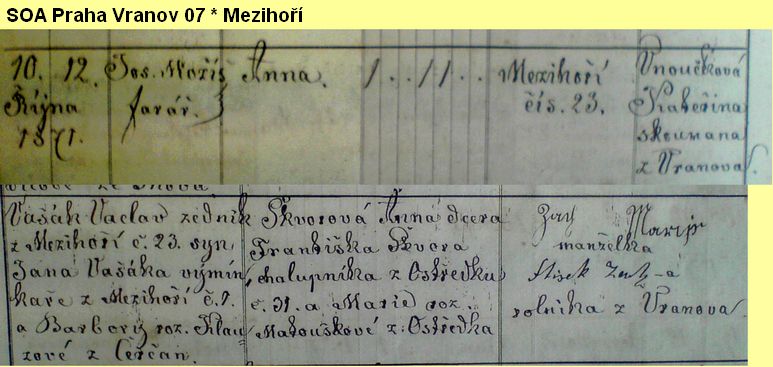 SOA Praha Vranov 07 * Mezihoří
10. 12. Jos. Mořiš Anna. 1 . . 1 1 . . Mezihoří Vnoučková
Října farář. čís. 23. Kateřina
1871. skoumana
z Vranova.
Vašák Vaclav zedník
z Mezihoří č. 23. syn
Jana Vašáka výmin-
kaře z Mezihoří č. 1.
a Barbory roz. Klau-
zové z Čerčan.
Škvorová Anna dcera
Františka Škvora
chalupníka z Ostředku
č. 31. a Marie roz.
Matouškové z Ostředka
Marie
manželka
rolníka z Vranova